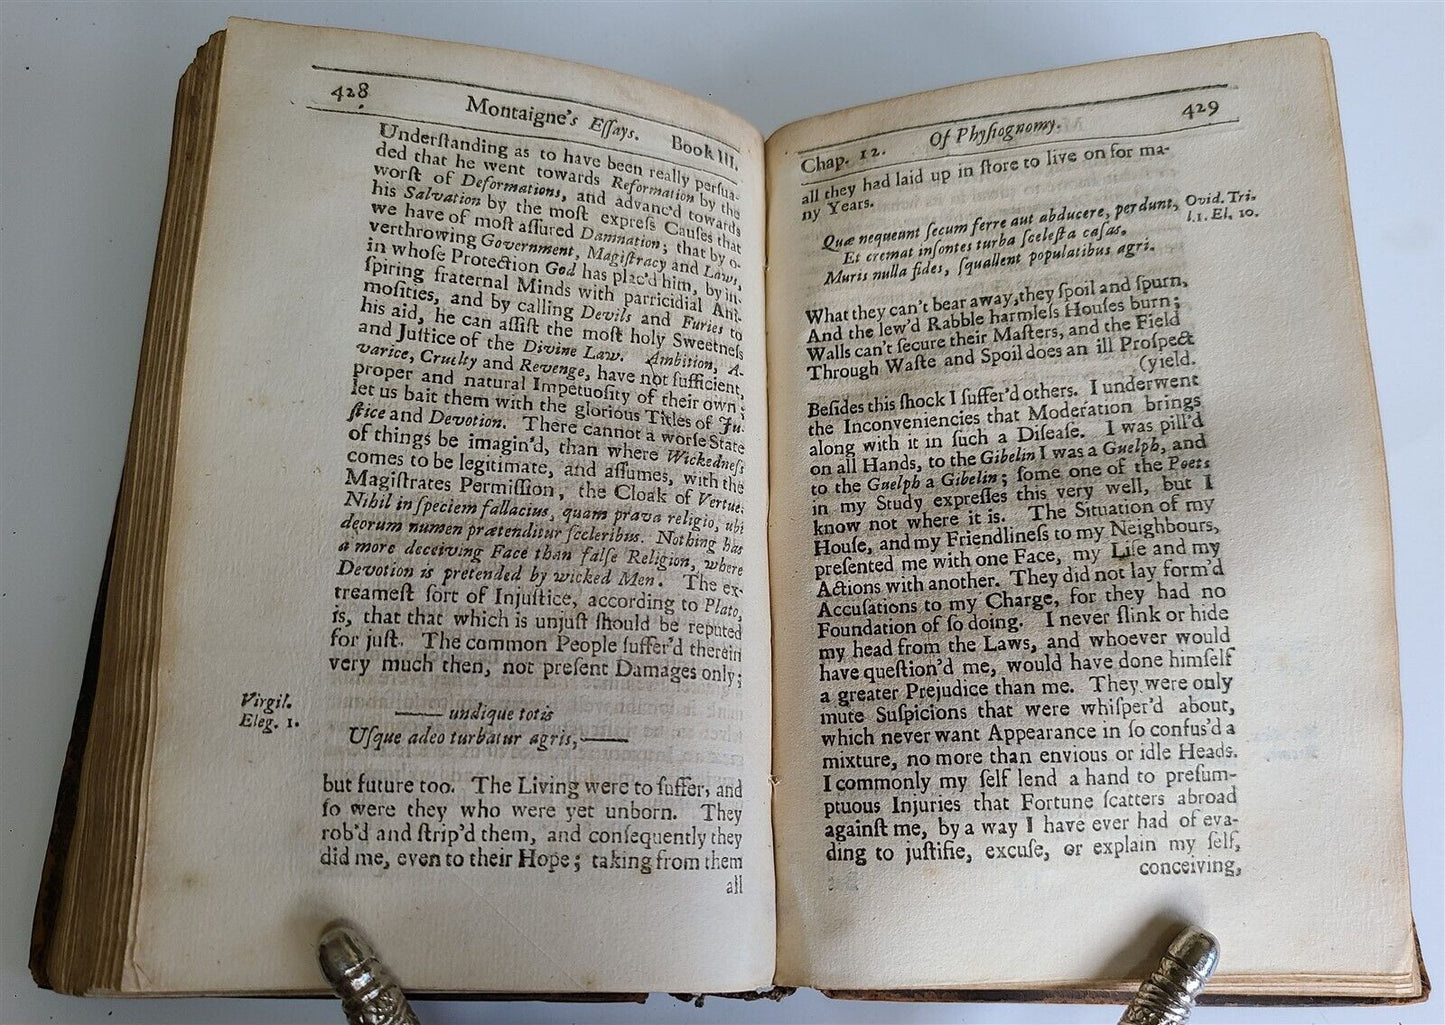 428 Montaigne's Eſſays. Book III.
Underſtanding as to have been really perſua-
ded that he went towards Reformation by the
worſt of Deformations, and advanc'd towards
his Salvation by the moſt expreſs Cauſes that
we have of moſt aſſured Damnation; that by o-
verthrowing Government, Magiſtracy and Laws,
in whoſe Protection God has plac'd him, by in-
ſpiring fraternal Minds with parricidial Ani-
moſities, and by calling Devils and Furies to
his aid, he can aſſiſt the moſt holy Sweetneſs
and Juſtice of the Divine Law. Ambition, A-
varice, Cruelty and Revenge, have not ſufficient,
proper and natural Impetuoſity of their own;
let us bait them with the glorious Titles of Ju-
ſtice and Devotion. There cannot a worſe State
of things be imagin'd, than where Wickedneſs
comes to be legitimate, and aſſumes, with the
Magiſtrates Permiſſion, the Cloak of Vertue.
Nihil in ſpeciem fallacius, quam prava religio, ubi
deorum numen prætenditur ſceleribus. Nothing has
a more deceiving Face than falſe Religion, where
Devotion is pretended by wicked Men. The ex-
treameſt ſort of Injuſtice, according to Plato,
is, that that which is unjuſt ſhould be reputed
for juſt. The common People ſuffer'd therein
very much then, not preſent Damages only;
Virgil.
Eleg. 1.
—— undique totis
Uſque adeo turbatur agris,——
but future too. The Living were to ſuffer, and
ſo were they who were yet unborn. They
rob'd and ſtrip'd them, and conſequently they
did me, even to their Hope; taking from them
all
Chap. 12. Of Phyſiognomy. 429
all they had laid up in ſtore to live on for ma-
ny Years.
Quæ nequeunt ſecum ferre aut abducere, perdunt,
Et cremat inſontes turba ſceleſta caſas.
Muris nulla fides, ſquallent populatibus agri.
Ovid. Tri.
l.1. El. 10.
What they can't bear away, they ſpoil and ſpurn,
And the lew'd Rabble harmleſs Houſes burn;
Walls can't ſecure their Maſters, and the Field
Through Waſte and Spoil does an ill Proſpect
(yield.
Beſides this ſhock I ſuffer'd others. I underwent
the Inconveniencies that Moderation brings
along with it in ſuch a Diſeaſe. I was pill'd
on all Hands, to the Gibelin I was a Guelph, and
to the Guelph a Gibelin; ſome one of the Poets
in my Study expreſſes this very well, but I
know not where it is. The Situation of my
Houſe, and my Friendlineſs to my Neighbours,
preſented me with one Face, my Life and my
Actions with another. They did not lay form'd
Accuſations to my Charge, for they had no
Foundation of ſo doing. I never ſlink or hide
my head from the Laws, and whoever would
have queſtion'd me, would have done himſelf
a greater Prejudice than me. They were only
mute Suſpicions that were whiſper'd about,
which never want Appearance in ſo confus'd a
mixture, no more than envious or idle Heads.
I commonly my ſelf lend a hand to preſum-
ptuous Injuries that Fortune ſcatters abroad
againſt me, by a way I have ever had of eva-
ding to juſtifie, excuſe, or explain my ſelf,
conceiving,